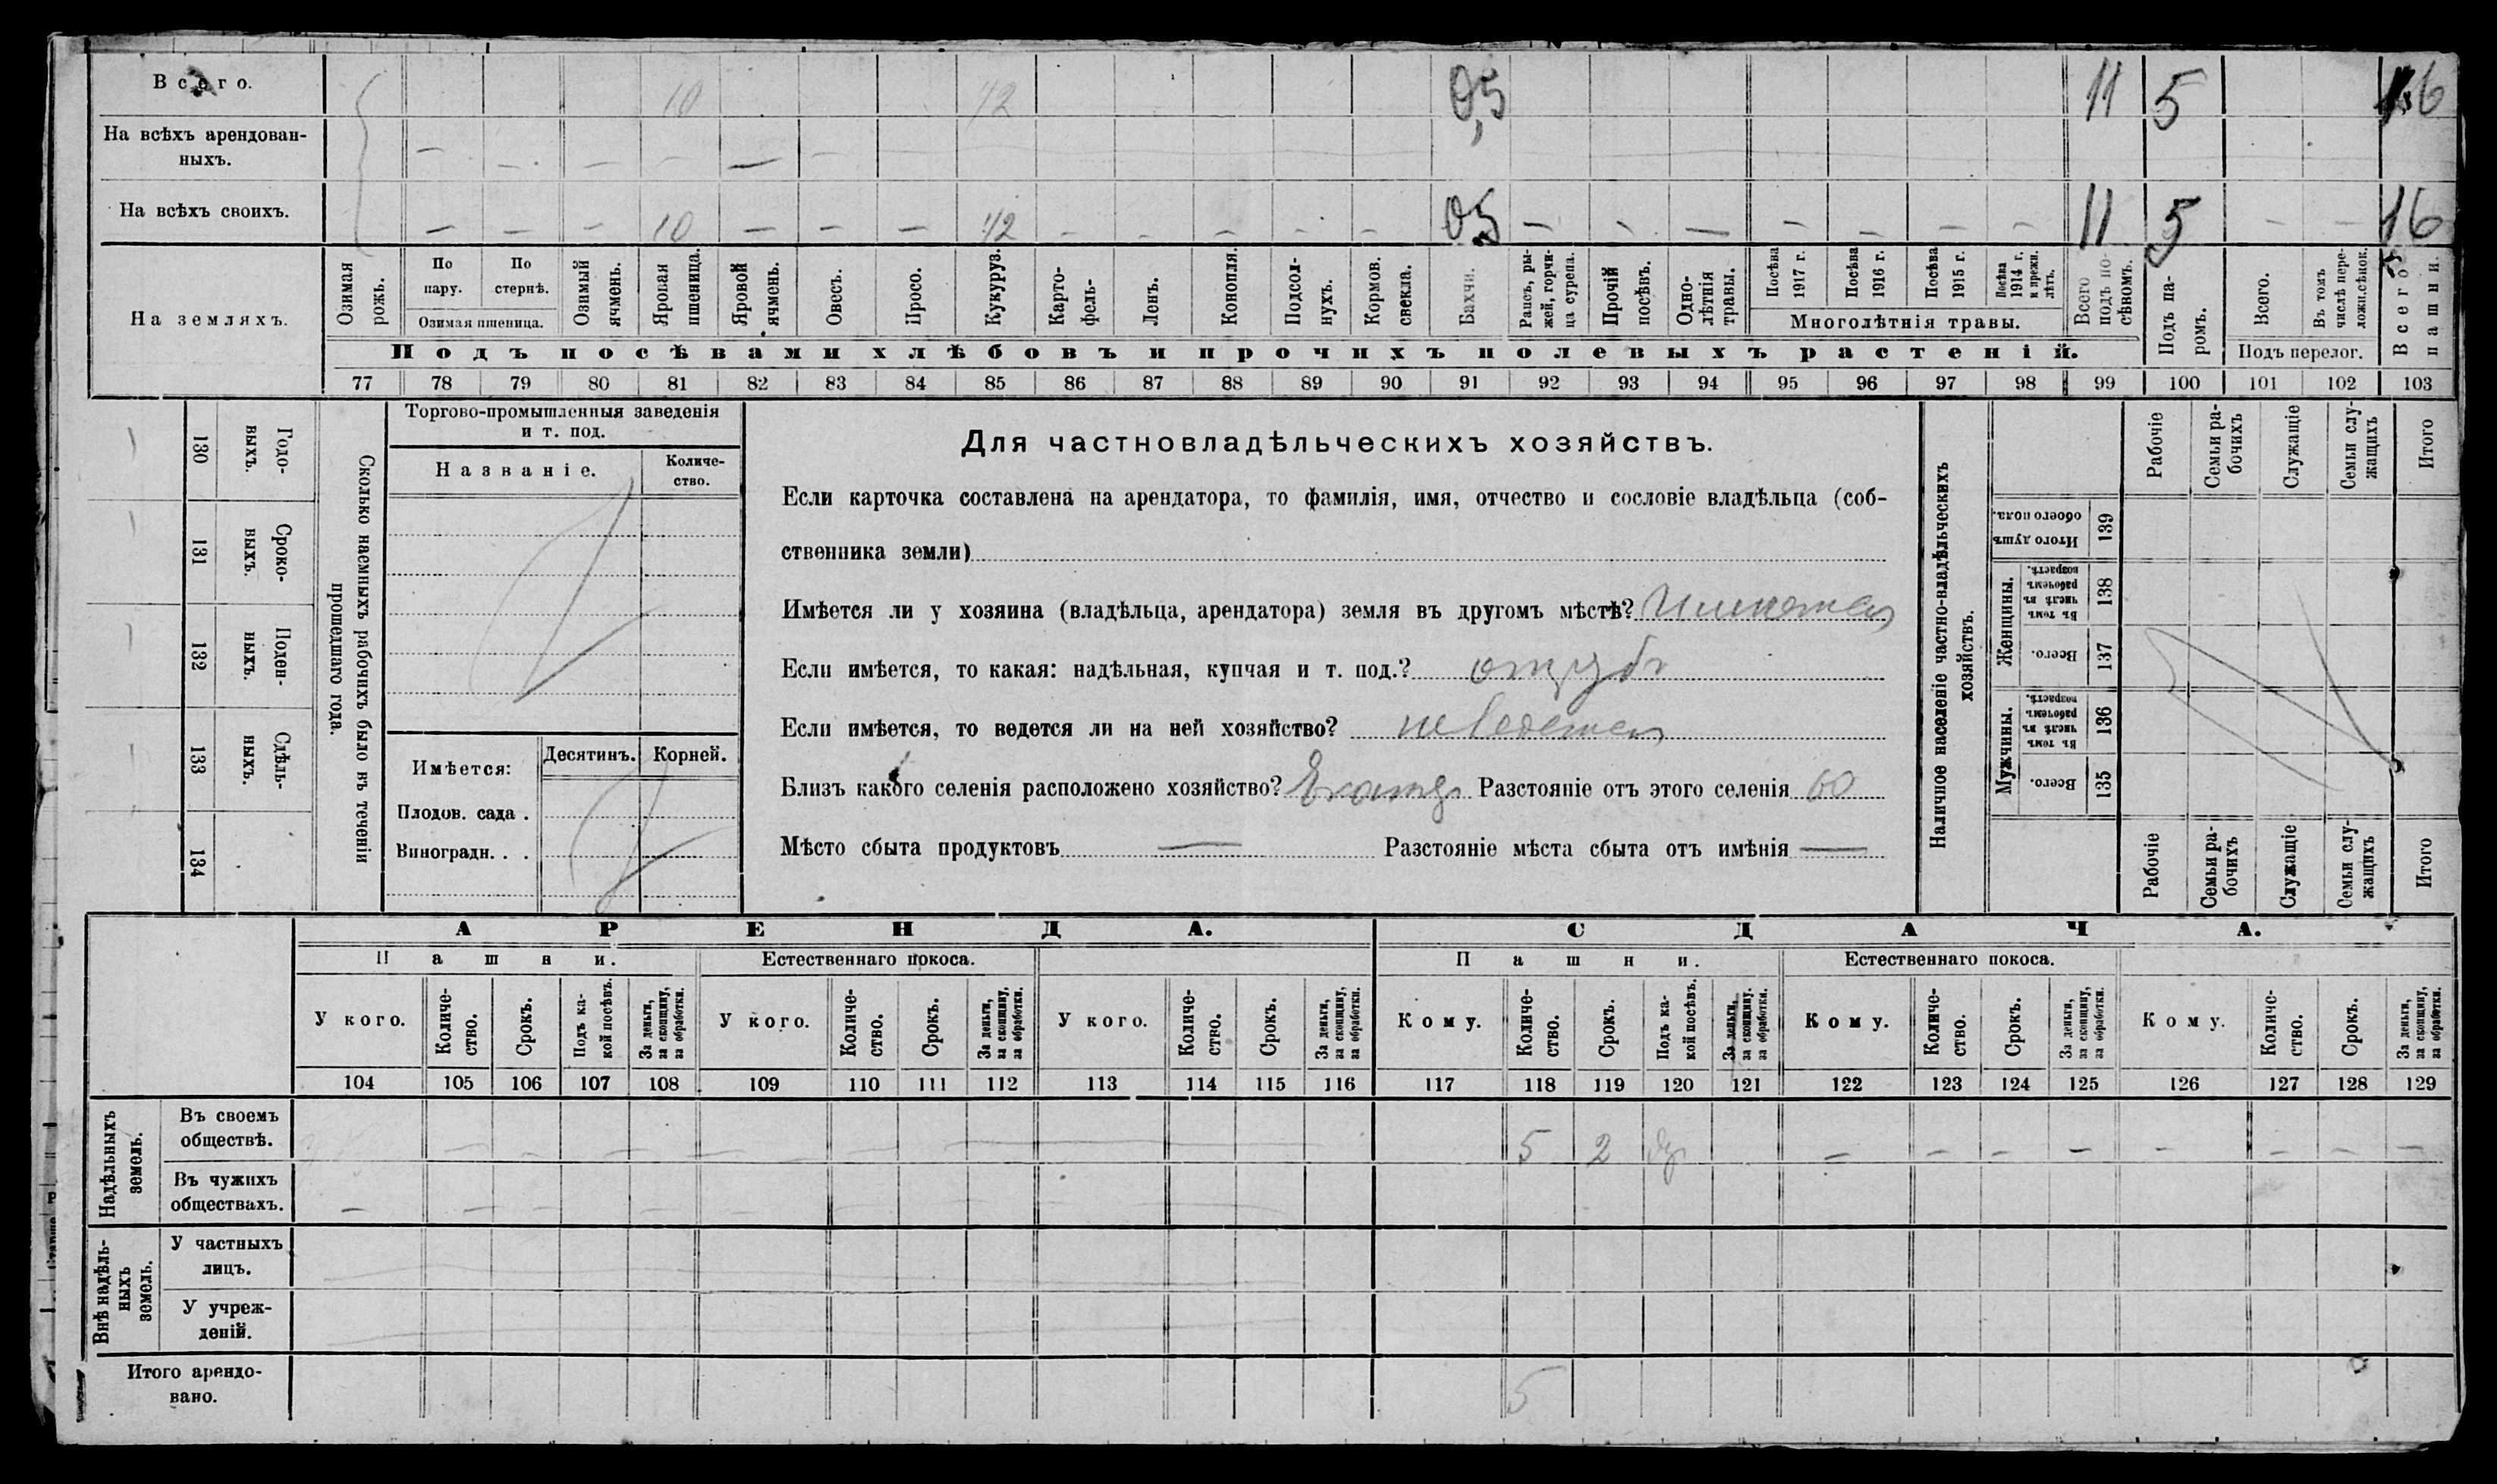 Всего. 10 1/2 0,5 11 5 16
На всѣхъ арендован-
ныхъ. — — — — — —
На всѣхъ своихъ. — — — 10 — — — 1/2 — — — — — 0,5 — — — — — — — 11 5 — — 16
На земляхъ.
Озимая рожь.
По пару.
По стернѣ.
Озимая пшеница.
Озимый ячмень.
Яровая пшеница.
Яровой ячмень.
Овесъ.
Просо.
Кукуруз.
Карто-
фель.
Ленъ.
Конопля.
Подсол-
нухъ.
Кормов. свекла.
Бахчи.
Рапсъ, ры-
жей, горчи-
ца сурепа.
Прочій посѣвъ.
Одно-
лѣтнія травы.
Посѣва 1917 г.
Посѣва 1916 г.
Посѣва 1915 г.
Посѣва 1914 г. и прежн. лѣтъ.
Многолѣтнія травы.
Всего подъ по-
сѣвомъ.
Подъ па-
ромъ.
Всего.
Въ томъ числѣ пере-
ложн.сѣнок.
Подъ перелог.
Всего пашни.
Подъ посѣвами хлѣбовъ и прочихъ полевыхъ растеній.
77 78 79 80 81 82 83 84 85 86 87 88 89 90 91 92 93 94 95 96 97 98 99 100 101 102 103
130 Годо-
выхъ.
131 Сроко-
ныхъ.
132 Поден-
ныхъ.
133 Сдѣль-
ныхъ.
134
Сколько наемныхъ рабочихъ было въ теченіи
прошедшаго года.
Торгово-промышленныя заведенія
и т. под.
Названіе.
Количе-
ство.
Имѣется:
Десятинъ. Корней.
Плодов. сада .
Виноградн. . .
Для частновладѣльческихъ хозяйствъ.
Если карточка составлена на арендатора, то фамилія, имя, отчество и сословіе владѣльца (соб-
ственника земли)
Имѣется ли у хозяина (владѣльца, арендатора) земля въ другомъ мѣстѣ? Имѣется
Если имѣется, то какая: надѣльная, купчая и т. под.? отрубъ
Если имѣется, то ведется ли на ней хозяйство? не ведется
Близъ какого селенія расположено хозяйство? Разстояніе отъ этого селенія 60
Мѣсто сбыта продуктовъ — Разстояніе мѣста сбыта отъ имѣнія —
Наличное населеніе частно-владѣльческихъ
хозяйствъ.
Рабочіе
Семьи ра-
бочихъ
Служащіе
Семьи слу-
жащихъ
Итого
Итого душъ обоего пола. 139
Женщины.
Въ томъ числѣ въ рабочемъ возрастѣ. 138
Всего. 137
Мужчины.
Въ томъ числѣ въ рабочемъ возрастѣ. 136
Всего. 135
Рабочіе
Семьи ра-
бочихъ
Служащіе
Семьи слу-
жащихъ
Итого
АРЕНДА. СДАЧА.
Пашни. Естественнаго покоса. Пашни. Естественнаго покоса.
У кого.
Количе-
ство.
Срокъ.
Подъ ка-
кой посѣвъ.
За деньги, за скопщину, за обработки.
У кого.
Количе-
ство.
Срокъ.
За деньги, за скопщину, за обработки.
У кого.
Количе-
ство.
Срокъ.
За деньги, за скопщину, за обработки.
Кому.
Количе-
ство.
Срокъ.
Подъ ка-
кой посѣвъ.
За деньги, за скопщину, за обработки.
Кому.
Количе-
ство.
Срокъ.
За деньги, за скопщину, за обработки.
Кому.
Количе-
ство.
Срокъ.
За деньги, за скопщину, за обработки.
104 105 106 107 108 109 110 111 112 113 114 115 116 117 118 119 120 121 122 123 124 125 126 127 128 129
Надѣльныхъ
земель.
Въ своемъ
обществѣ. 5 2 — — — — — — — —
Въ чужихъ
обществахъ.
Внѣ надѣль-
ныхъ
земель.
У частныхъ
лицъ.
У учреж-
деній.
Итого арендо-
вано. 5